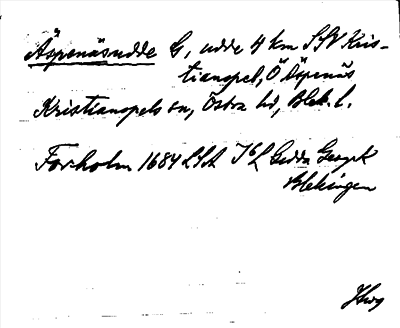 Äspenäsudde G, udde 4 km SSV Kris-
tianopel, Ö Äspenäs
Kristianopels sn, Östra hd, Blek. l.
Forholm 1684 LSA Gedda Geogr
Blekingen